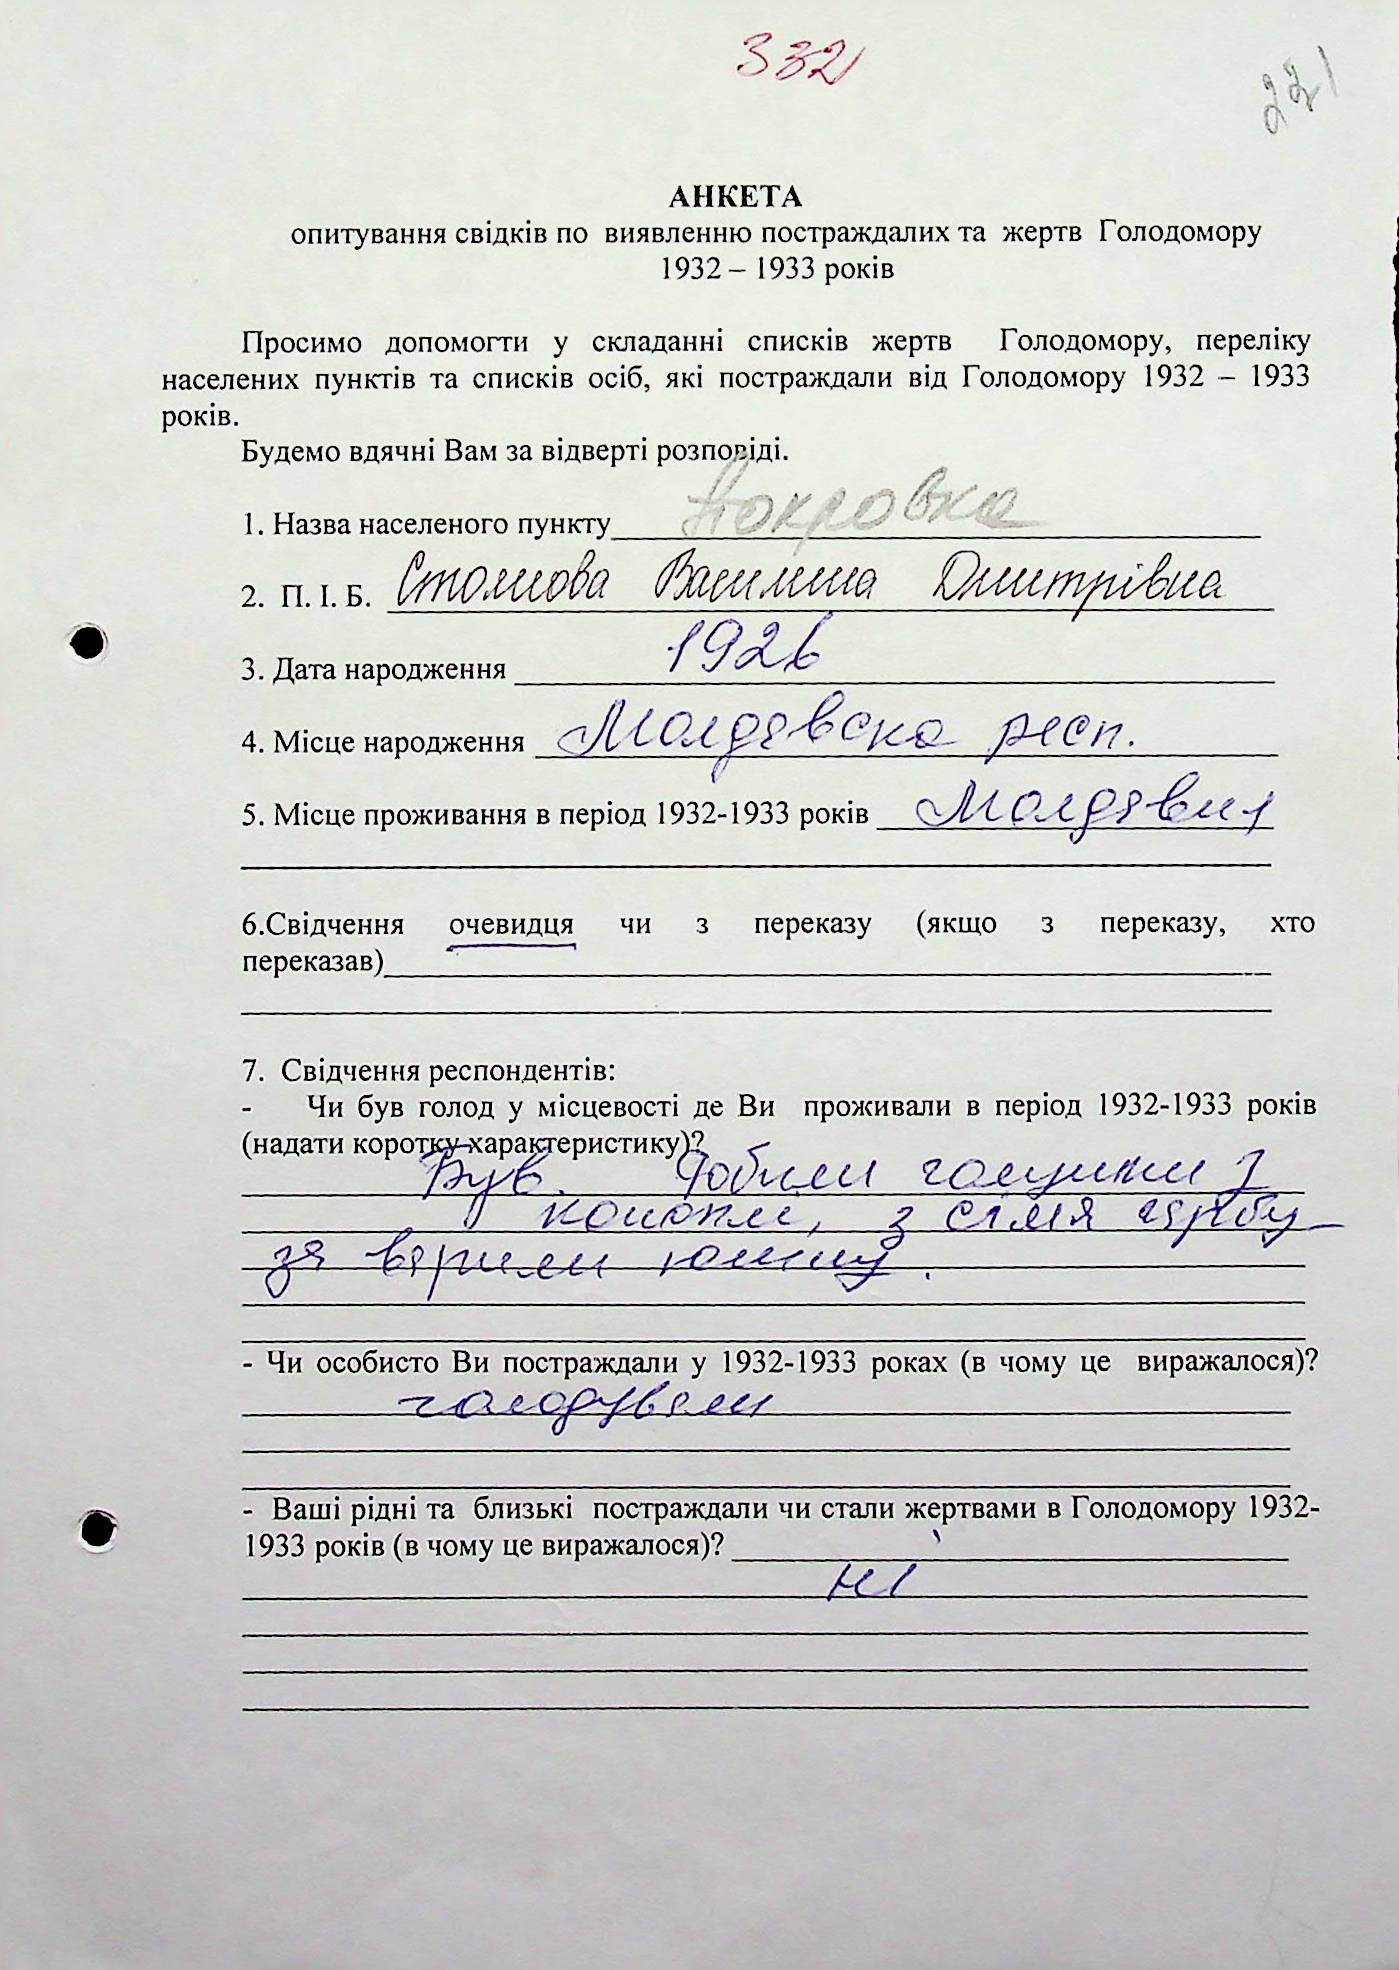 332
221
АНКЕТА
опитування свідків по виявленню постраждалих та жертв Голодомору
1932 – 1933 років
Просимо допомогти у складанні списків жертв Голодомору, переліку
населених пунктів та списків осіб, які постраждали від Голодомору 1932 – 1933
років.
Будемо вдячні Вам за відверті розповіді.
1. Назва населеного пункту Покровка
2. П. І. Б. Стоянова Василина Дмитрівна
3. Дата народження 1926
4. Місце народження Молдавська респ.
5. Місце проживання в період 1932-1933 років Молдавия
6.Свідчення очевидця чи з переказу (якщо з переказу, хто
переказав)
7. Свідчення респондентів:
- Чи був голод у місцевості де Ви проживали в період 1932-1933 років
(надати коротку характеристику)?
Був. Робили галушки з
коноплі, з сімя гарбу-
за варили юшку.
- Чи особисто Ви постраждали у 1932-1933 роках (в чому це виражалося)?
голодували
- Ваші рідні та близькі постраждали чи стали жертвами в Голодомору 1932-
1933 років (в чому це виражалося)?
ні